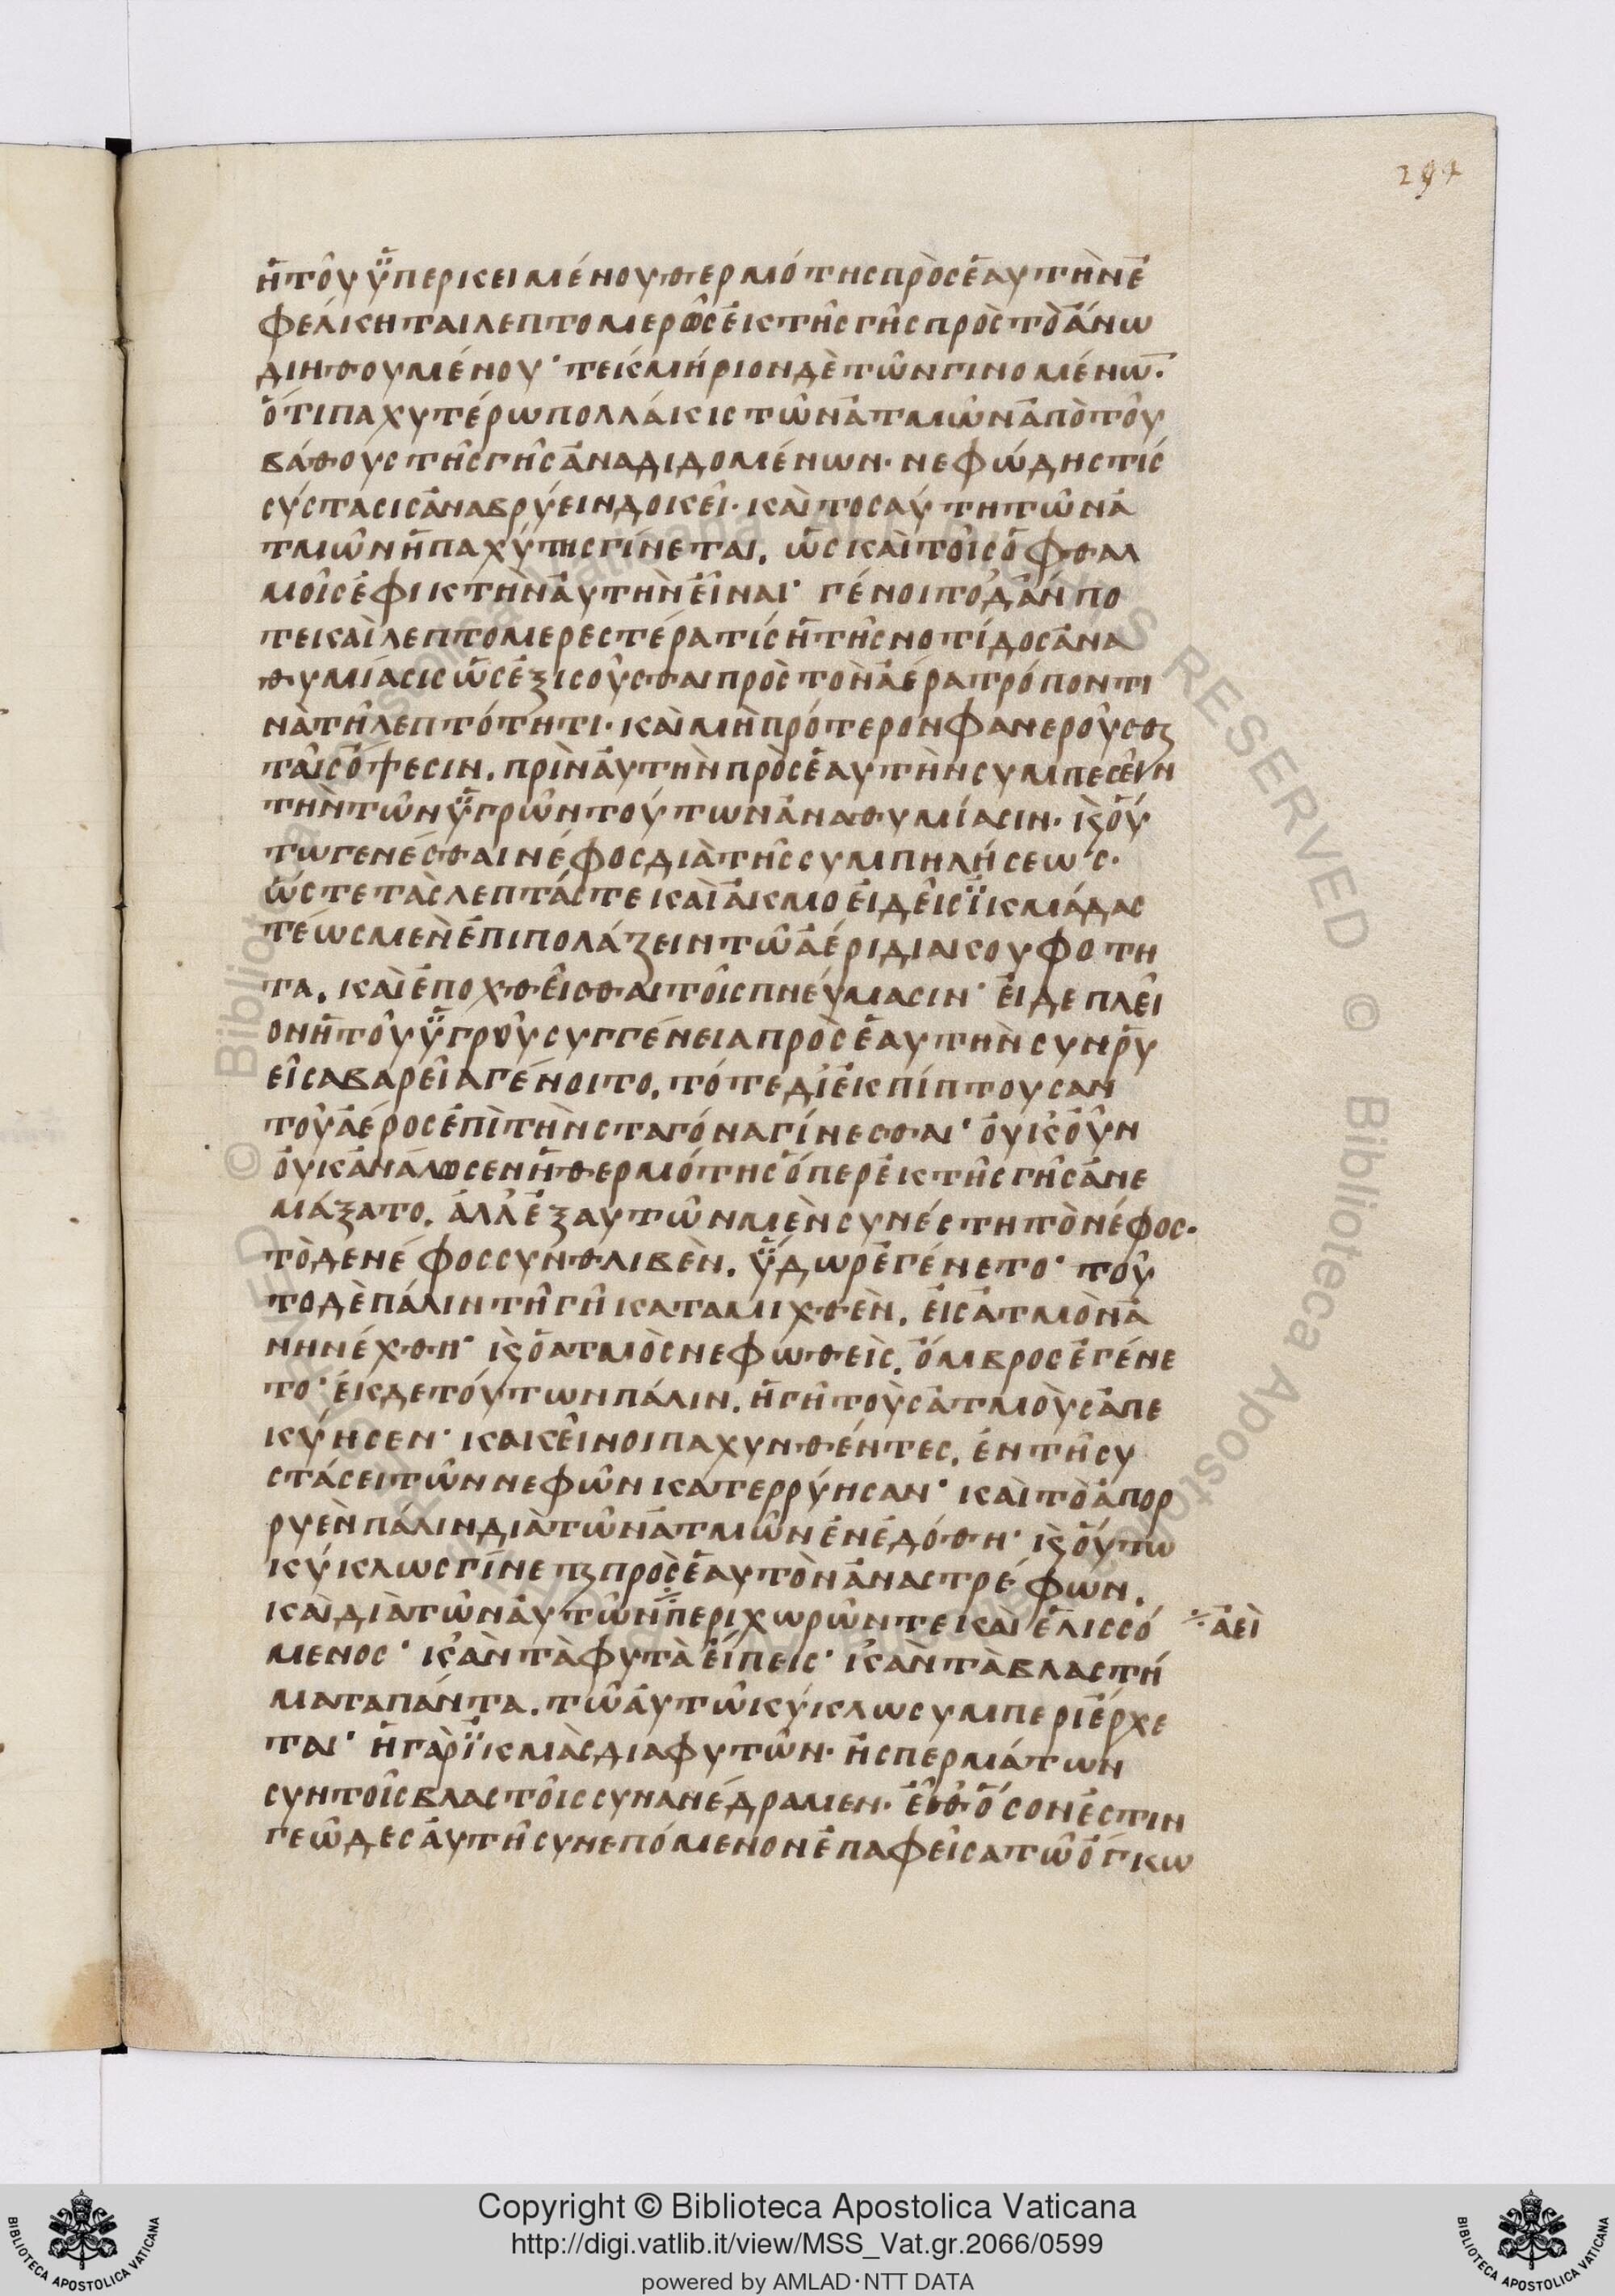 294
ἡ τοῦ ὑπερκειμένου θερμότης πρὸς ἑαυτὴν ἐ
φέλκηται λεπτομερῶς ἐκ τῆς γῆς πρὸς τὸ ἄνω
διηθουμένου· τεκμήριον δὲ τῶν γινομένω̅.
ὅτι παχυτέρω πολλάκις τῶν ἀτμῶν ἀπὸ τοῦ
βάθους τῆς γῆς ἀναδιδομένων· νεφώδης τίς
σύστασις ἀναβρύειν δοκεῖ· καὶ τοσαύτη τῶν ἀ
τμῶν ἡ παχύτης γίνεται, ὡς καὶ τοῖς ὀφθαλ
μοῖς ἐφικτὴν αὐτὴν εἶναι· γένοιτο δ' ἄν πο
τε καὶ λεπτομερεστέρα τίς ἡ τῆς νοτίδος ἀνα
θυμίασις ὡς ἐξισοῦσθαι πρὸς τὸν ἀέρα τρόπον τι
νὰ τῇ λεπτότητι· καὶ μὴ πρότερον φανεροῦσθϗ
ταῖς ὄψεσιν. πρὶν αὐτὴν πρὸς ἑαυτὴν συμπεσεῖν
τὴν τῶν ὑγρῶν τούτων ἀναθυμίασιν· ϗ οὕ
τω γενέσθαι νέφος διὰ τῆς συμπηλήσεως.
ὥστε τὰς λεπτάς τε καὶ ἀκμοειδεῖς ἰκμάδας
τέως μὲν ἐπιπολάζειν τῶ ἀέρι διαι κουφοτη
τα. καὶ ἐποχθεῖσθαι τοῖς πνεύμασιν· εἰ δε πλεῖ
ον ἡ τοῦ ὑγροῦ συγγένεια πρὸς ἑαυτὴν συνρυ
εῖσα βαρεῖα γένοιτο, τότε δὶ ἐκπίπτουσαν
τοῦ ἀέρος ἐπὶ τὴν σταγόνα γίνεσθαι· οὐκ οὖν
οὐκ ἀνάλωσεν ἡ θερμότης ὅπερ ἐκ τῆς γῆς ἀνε
μάξατο. ἀλλ' ἐξ αυτῶν μὲν συνέστη τὸ νέφος.
τὸ δε νέφος συνθλιβὲν. ὕδωρ ἐγένετο· τοῦ
το δὲ πάλιν τῇ γῇ καταμιχθὲν. εἰς ἀτμὸν ἀ
νηνέχθη· ϗ ὁ ατμὸς νεφωθεὶς, ὄμβρος ἐγένε
το· ἐκ δε τούτων πάλιν. ἡ γῆ τοὺς ἀτμοὺς ἀπε
κύησεν· κακεῖνοι παχυνθέντες. ἐν τῇ συ
στάσει τῶν νεφῶν κατερρύησαν· καὶ τὸ ἀπορ
ρυὲν πάλιν διὰ τῶν ἀτμῶν ἐνεδόθη· ϗ οὕτω
κύκλως γίνετϗ πρὸς ἑαυτὸν ἀναστρέφων.
καὶ διὰ τῶν αὐτῶν ⁒ περιχωρῶν τε καὶ ἑλισσό ⁒ ἀεὶ
μενος· κ' ἂν τὰ φυτὰ εἴπεις· κ' ἂν τὰ βλαστή
ματα πάντα. τῶ αὐτῶ κύκλω συμπεριέρχε
ται· ἡ γὰρ ἰκμὰς δια φυτῶν· ἢ σπερμάτων
συν τοῖς βλαστοῖς συνανέδραμεν. εἶθ' ὅσον ἐστιν
γεῶδες αὐτῇ συνεπόμενον ἐπαφεῖσα τῶ ὄγκω
Copyright © Biblioteca Apostolica Vaticana
http://digi.vatlib.it/view/MSS_Vat.gr.2066/0599
powered by AMLAD·NTT DATA